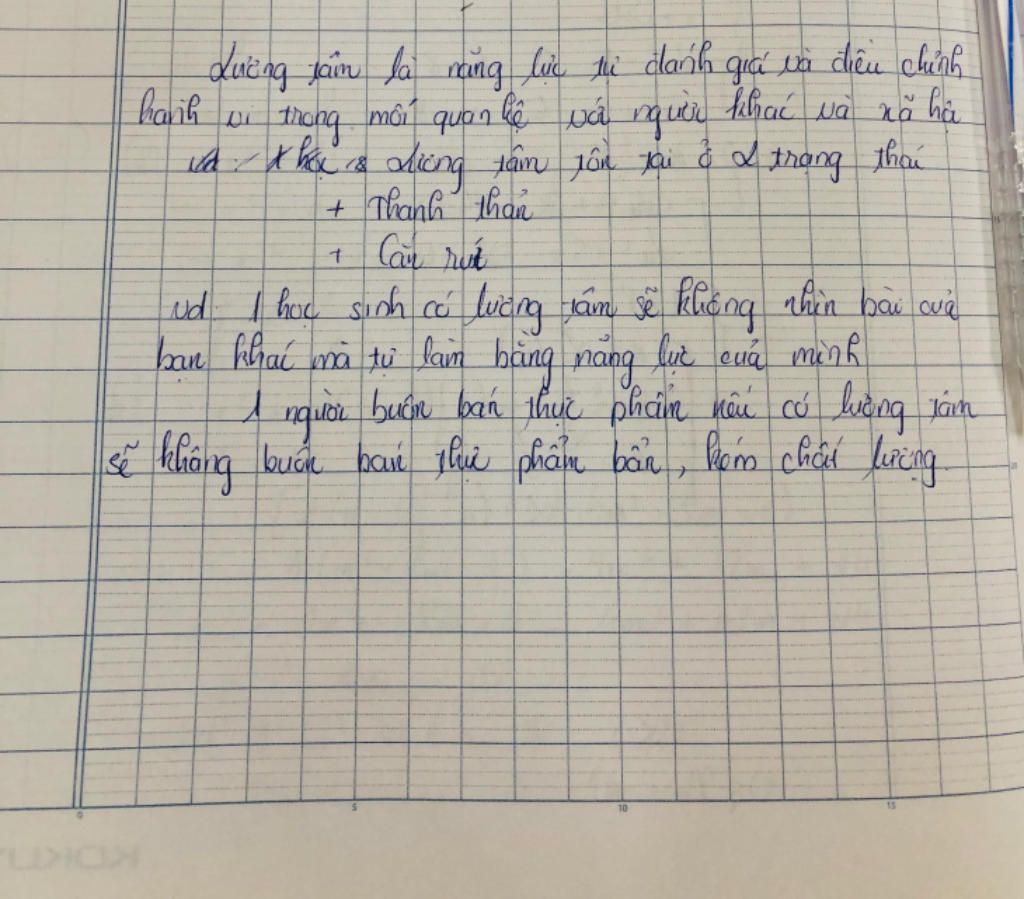 Lương tâm là năng lực tự đánh giá và điều chỉnh
hành vi trong mối quan hệ với người khác và xã hội
vd: lương tâm tồn tại ở 2 trạng thái
+ Thanh thản
+ Cắn rứt
vd: 1 học sinh có lương tâm sẽ không nhìn bài của
bạn khác mà tự làm bằng năng lực của mình
1 người buôn bán thực phẩm nếu có lương tâm
sẽ không buôn bán thực phẩm bẩn, kém chất lượng.
0 5 10 15
KOKUY